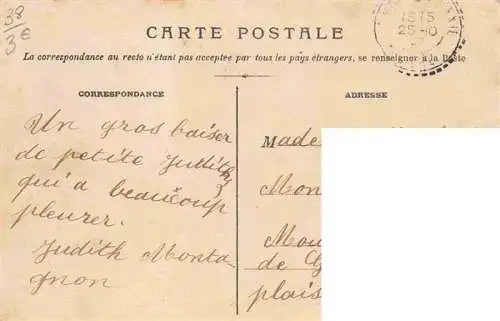 38
3€
CARTE POSTALE
1515
25-10
La correspondance au recto n'étant pas acceptée par tous les pays étrangers, se renseigner à la Poste
CORRESPONDANCE
ADRESSE
Un gros baiser
de petite Judith
qui a beaucoup
pleurer.
Judith Monta
gnon
Made
Mon
Mou
de
plais